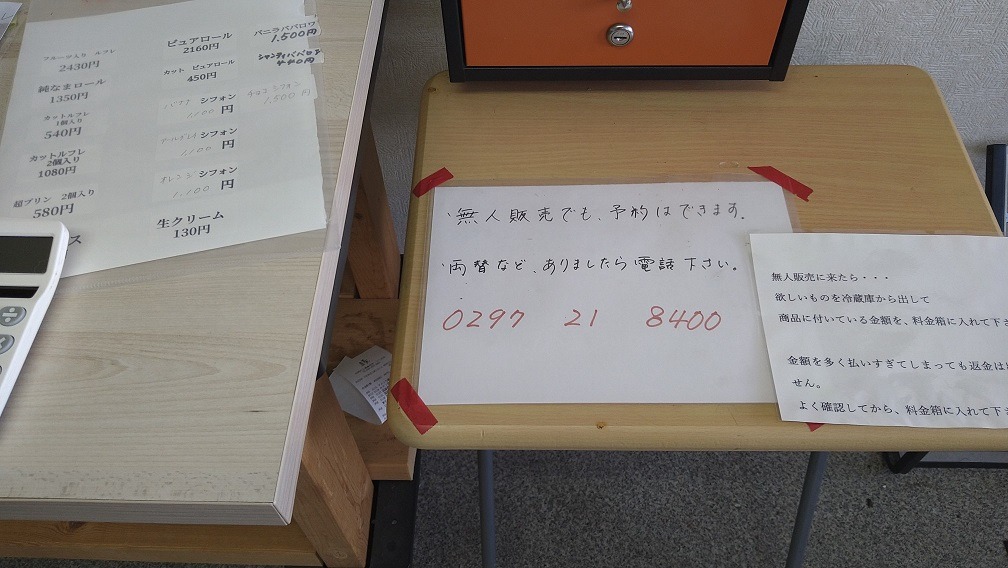 フルーツ入り ルフレ
2430円
純なまロール
1350円
カットルフレ
1個入り
540円
カットルフレ
2個入り
1080円
超プリン 2個入り
580円
ス
ピュアロール
2160円
カット ピュアロール
450円
バナナ シフォン
1,100 円
シフォン
1,100 円
オレンジ シフォン
1,100 円
生クリーム
130円
バニラババロワ
1,500円
440円
シフォン
1,500円
・無人販売でも、予約はできます。
・両替など、ありましたら電話下さい。
0297 21 8400
無人販売に来たら・・・
欲しいものを冷蔵庫から出して
商品に付いている金額を、料金箱に入れて下さ
金額を多く払いすぎてしまっても返金は
せん。
よく確認してから、料金箱に入れて下